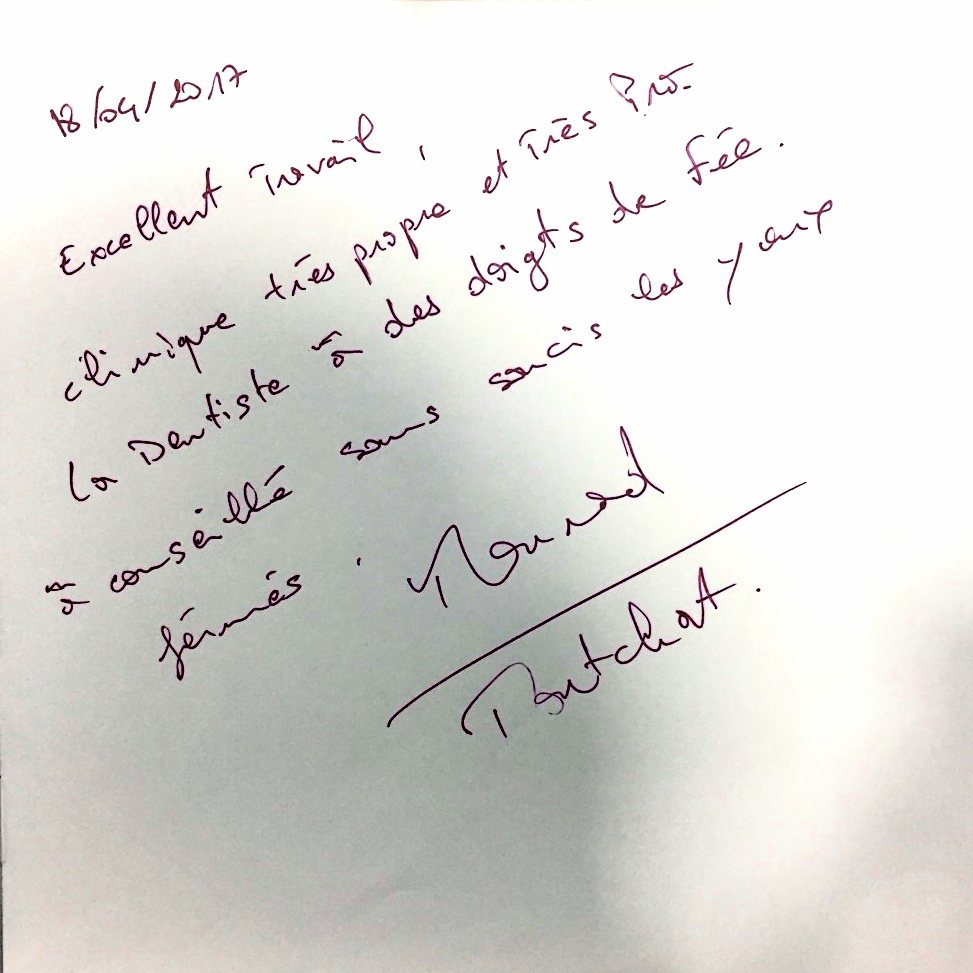 18/04/2017
Excellent Travail,
clinique très propre et Très Pro.
la Dentiste à des doigts de fée.
à conseillé sans soucis les yeux
férmés.
Mourad
Boutchat.